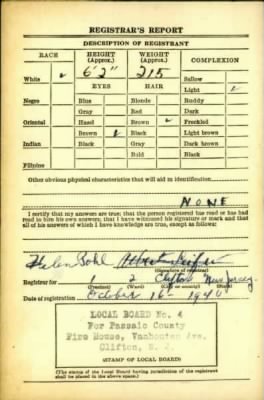 REGISTRAR'S REPORT
DESCRIPTION OF REGISTRANT
RACE HEIGHT (Approx.) WEIGHT (Approx.) COMPLEXION
White ✓ 6'2" 215 Sallow
Light ✓
EYES HAIR
Negro Blue Blonde Ruddy
Gray Red Dark
Oriental Hazel Brown ✓ Freckled
Brown ✓ Black Light brown
Indian Black Gray Dark brown
Bald Black
Filipino
Other obvious physical characteristics that will aid in identification
NONE
I certify that my answers are true; that the person registered has read or has had
read to him his own answers; that I have witnessed his signature or mark and that
all of his answers of which I have knowledge are true, except as follows:
Helen
(Signature of registrar)
Registrar for 1 2 Clifton New Jersey
(Precinct) (Ward) (City or county) (State)
Date of registration October 16 - 1940
LOCAL BOARD No. 4
For Passaic County
Fire House, Vanhouten Ave.
Clifton, N. J.
(STAMP OF LOCAL BOARD)
(The stamp of the Local Board having jurisdiction of the registrant
shall be placed in the above space.)